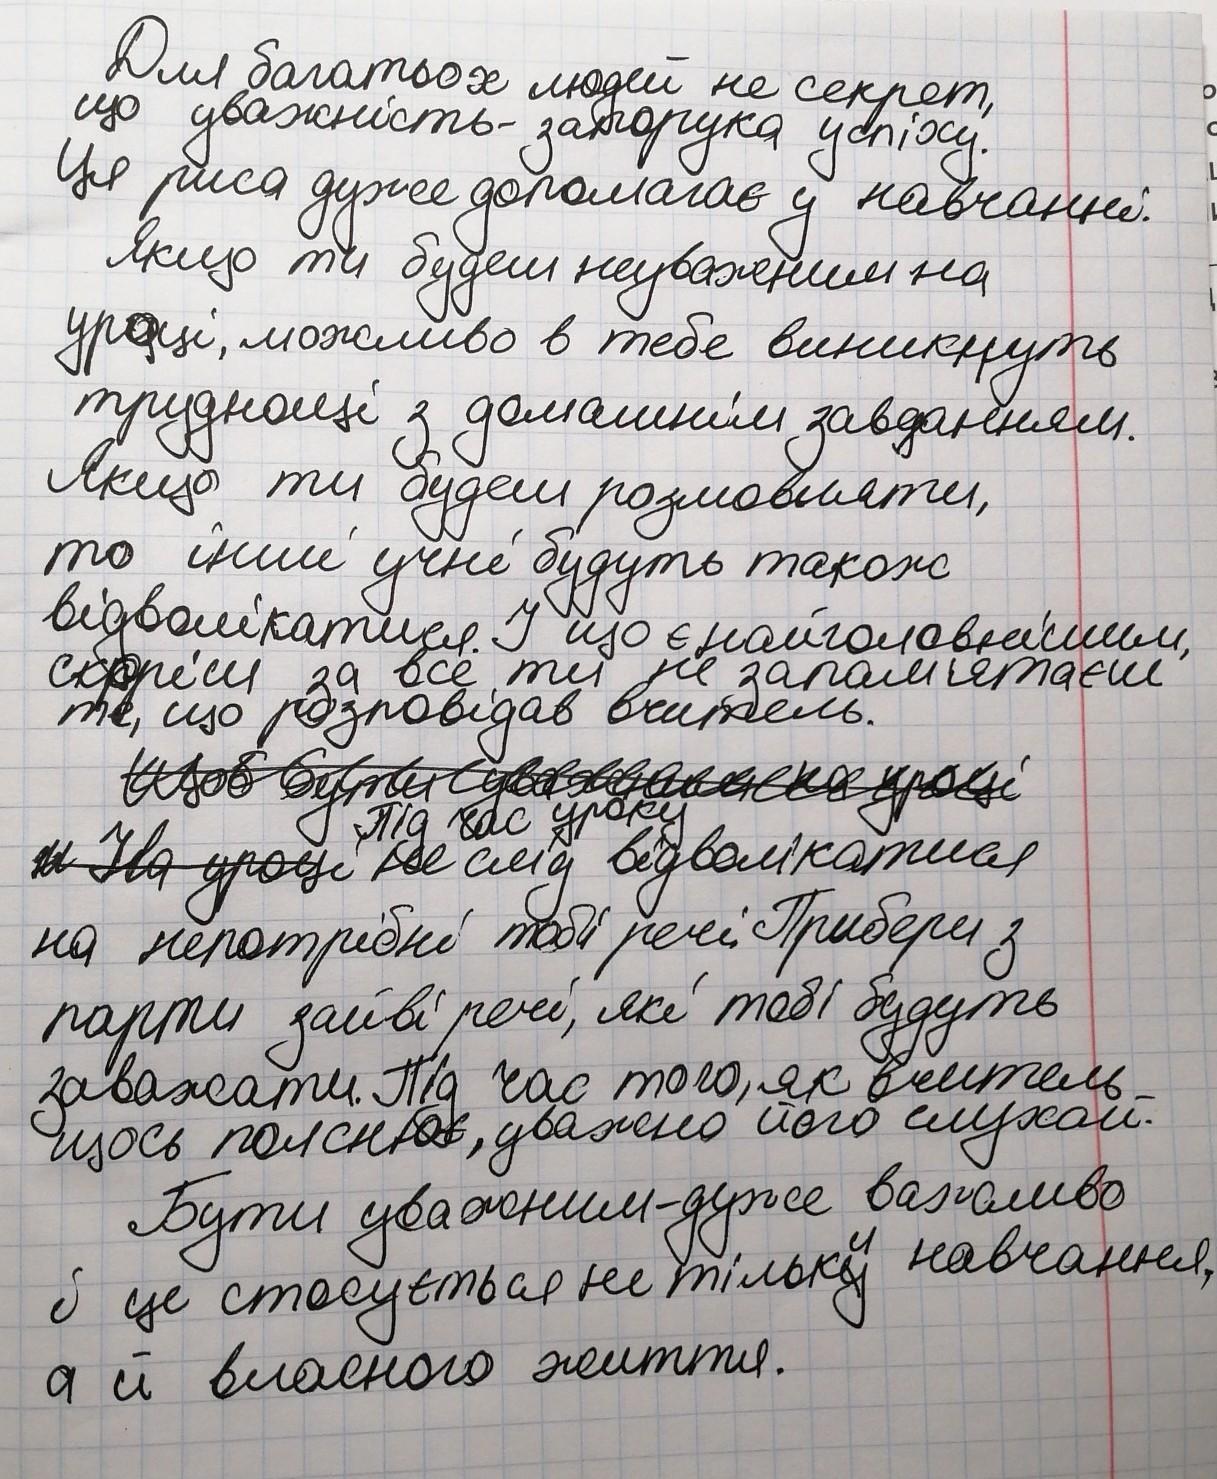 Для багатьох людей не секрет,
що уважність - запорука успіху.
Ця риса дуже допомагає у навчанні.
Якщо ти будеш неуважним на
уроці, можливо в тебе виникнуть
труднощі з домашнім завданням.
Якщо ти будеш розмовляти,
то інші учні будуть також
відволікатися. І що є найголовнішим,
скоріш за все ти не запам'ятаєш
те, що розповідав вчитель.
Щоб бути уважним на уроці
Під час уроку
На уроці не слід відволікатися
на непотрібні тобі речі. Прибери з
парти зайві речі, які тобі будуть
заважати. Під час того, як вчитель
щось пояснює, уважно його слухай.
Бути уважним - дуже важливо
і це стосується не тільки навчання,
а й власного життя.